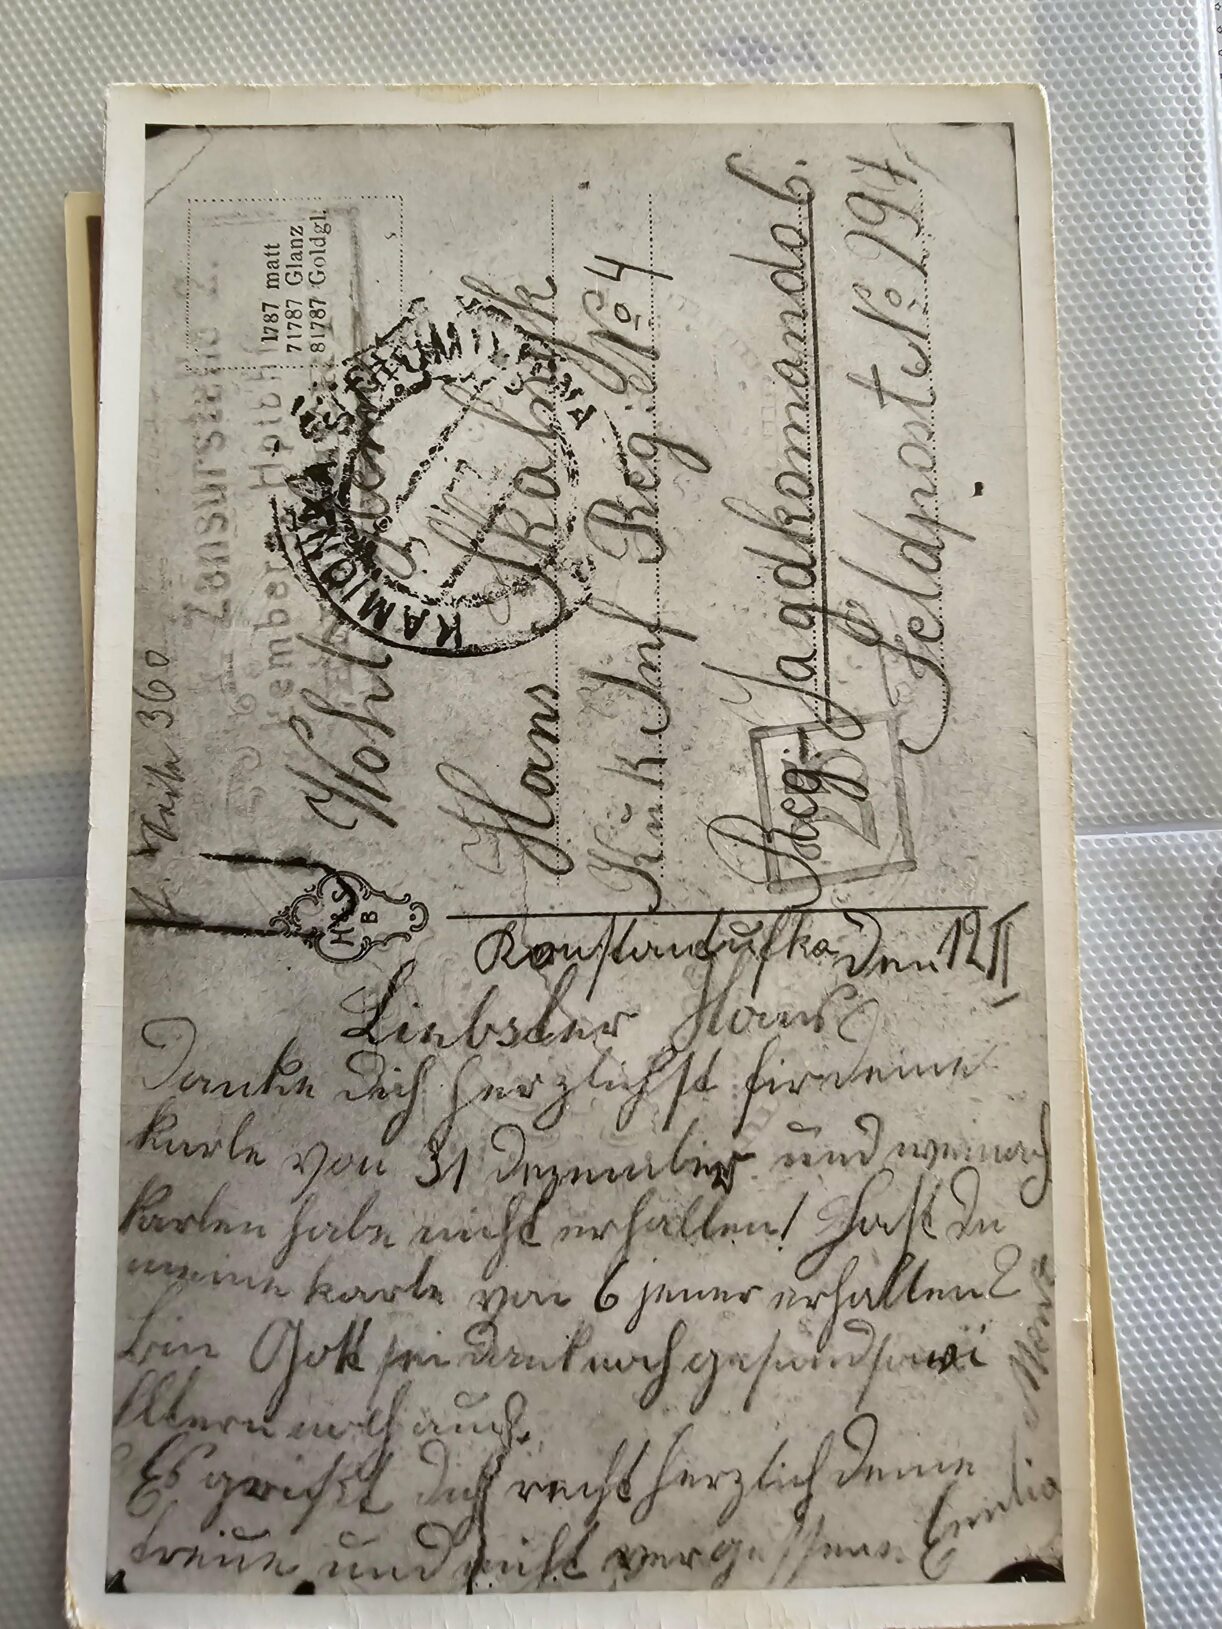 Seite 360
Zensurstelle
Lemberg Hptbhf
1787 matt
71787 Glanz
81787 Goldgl.
KAMIONKA STRUMIŁOWA
Wohlgeboren
Hans Skalnyk
K u k Inf Reg No 4
Reg. Jagdkomando 6.
Feldpost No 194
H & S
B
Konstantufka den 12 II
Liebster Hans
Danke dich herzlichst fir deine
karte von 31 Dezember und weinach
karten habe nicht erhallten! hast du
meine karte von 6 jener erhalten?
bin Gott sei dank noch gesund sowi
Eltern noch auch.
Es griest dich recht herzlich deine
treue und nicht vergessene Emilia